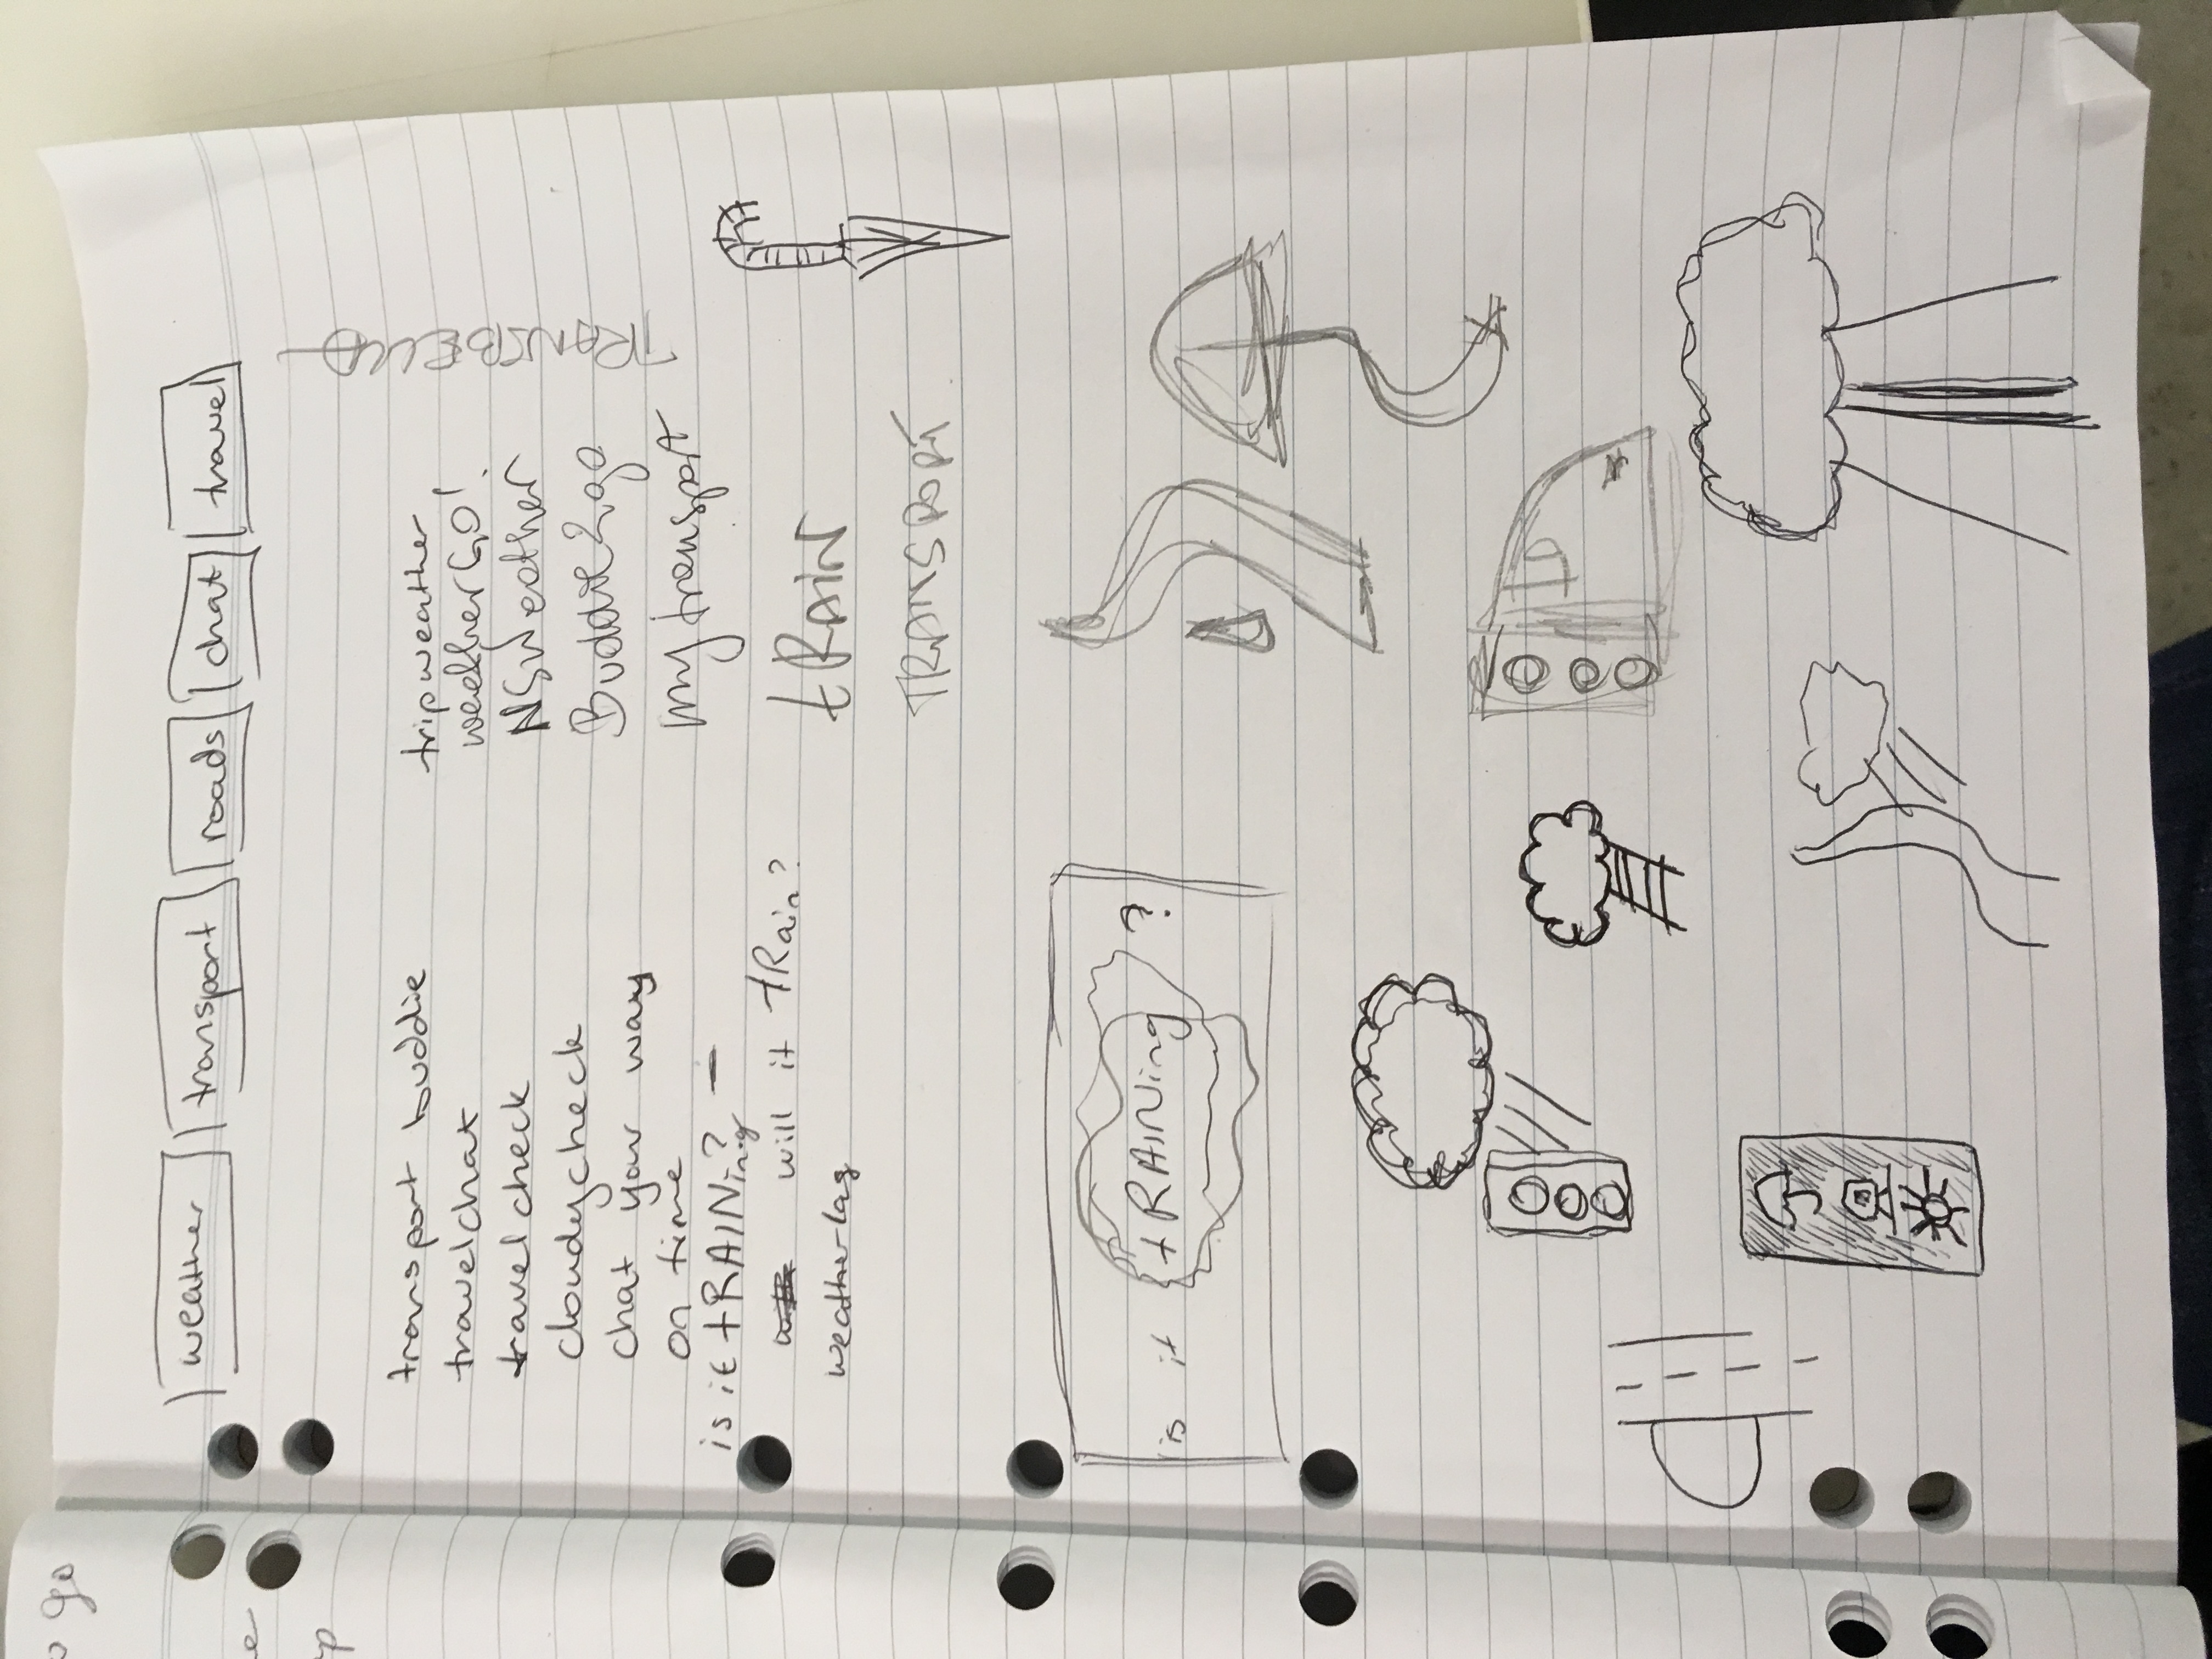 o go
e
p
weather transport roads chat travel
transport buddie
travelchat
travel check
cloudycheck
chat your way
on time
is it tRAINing? –
will it tRain?
weather-lag
tripweather
weatherGO!
NSWeather
Buddie2go
my transport
tRAIN
TRANSPORT
is it tRAINing ?